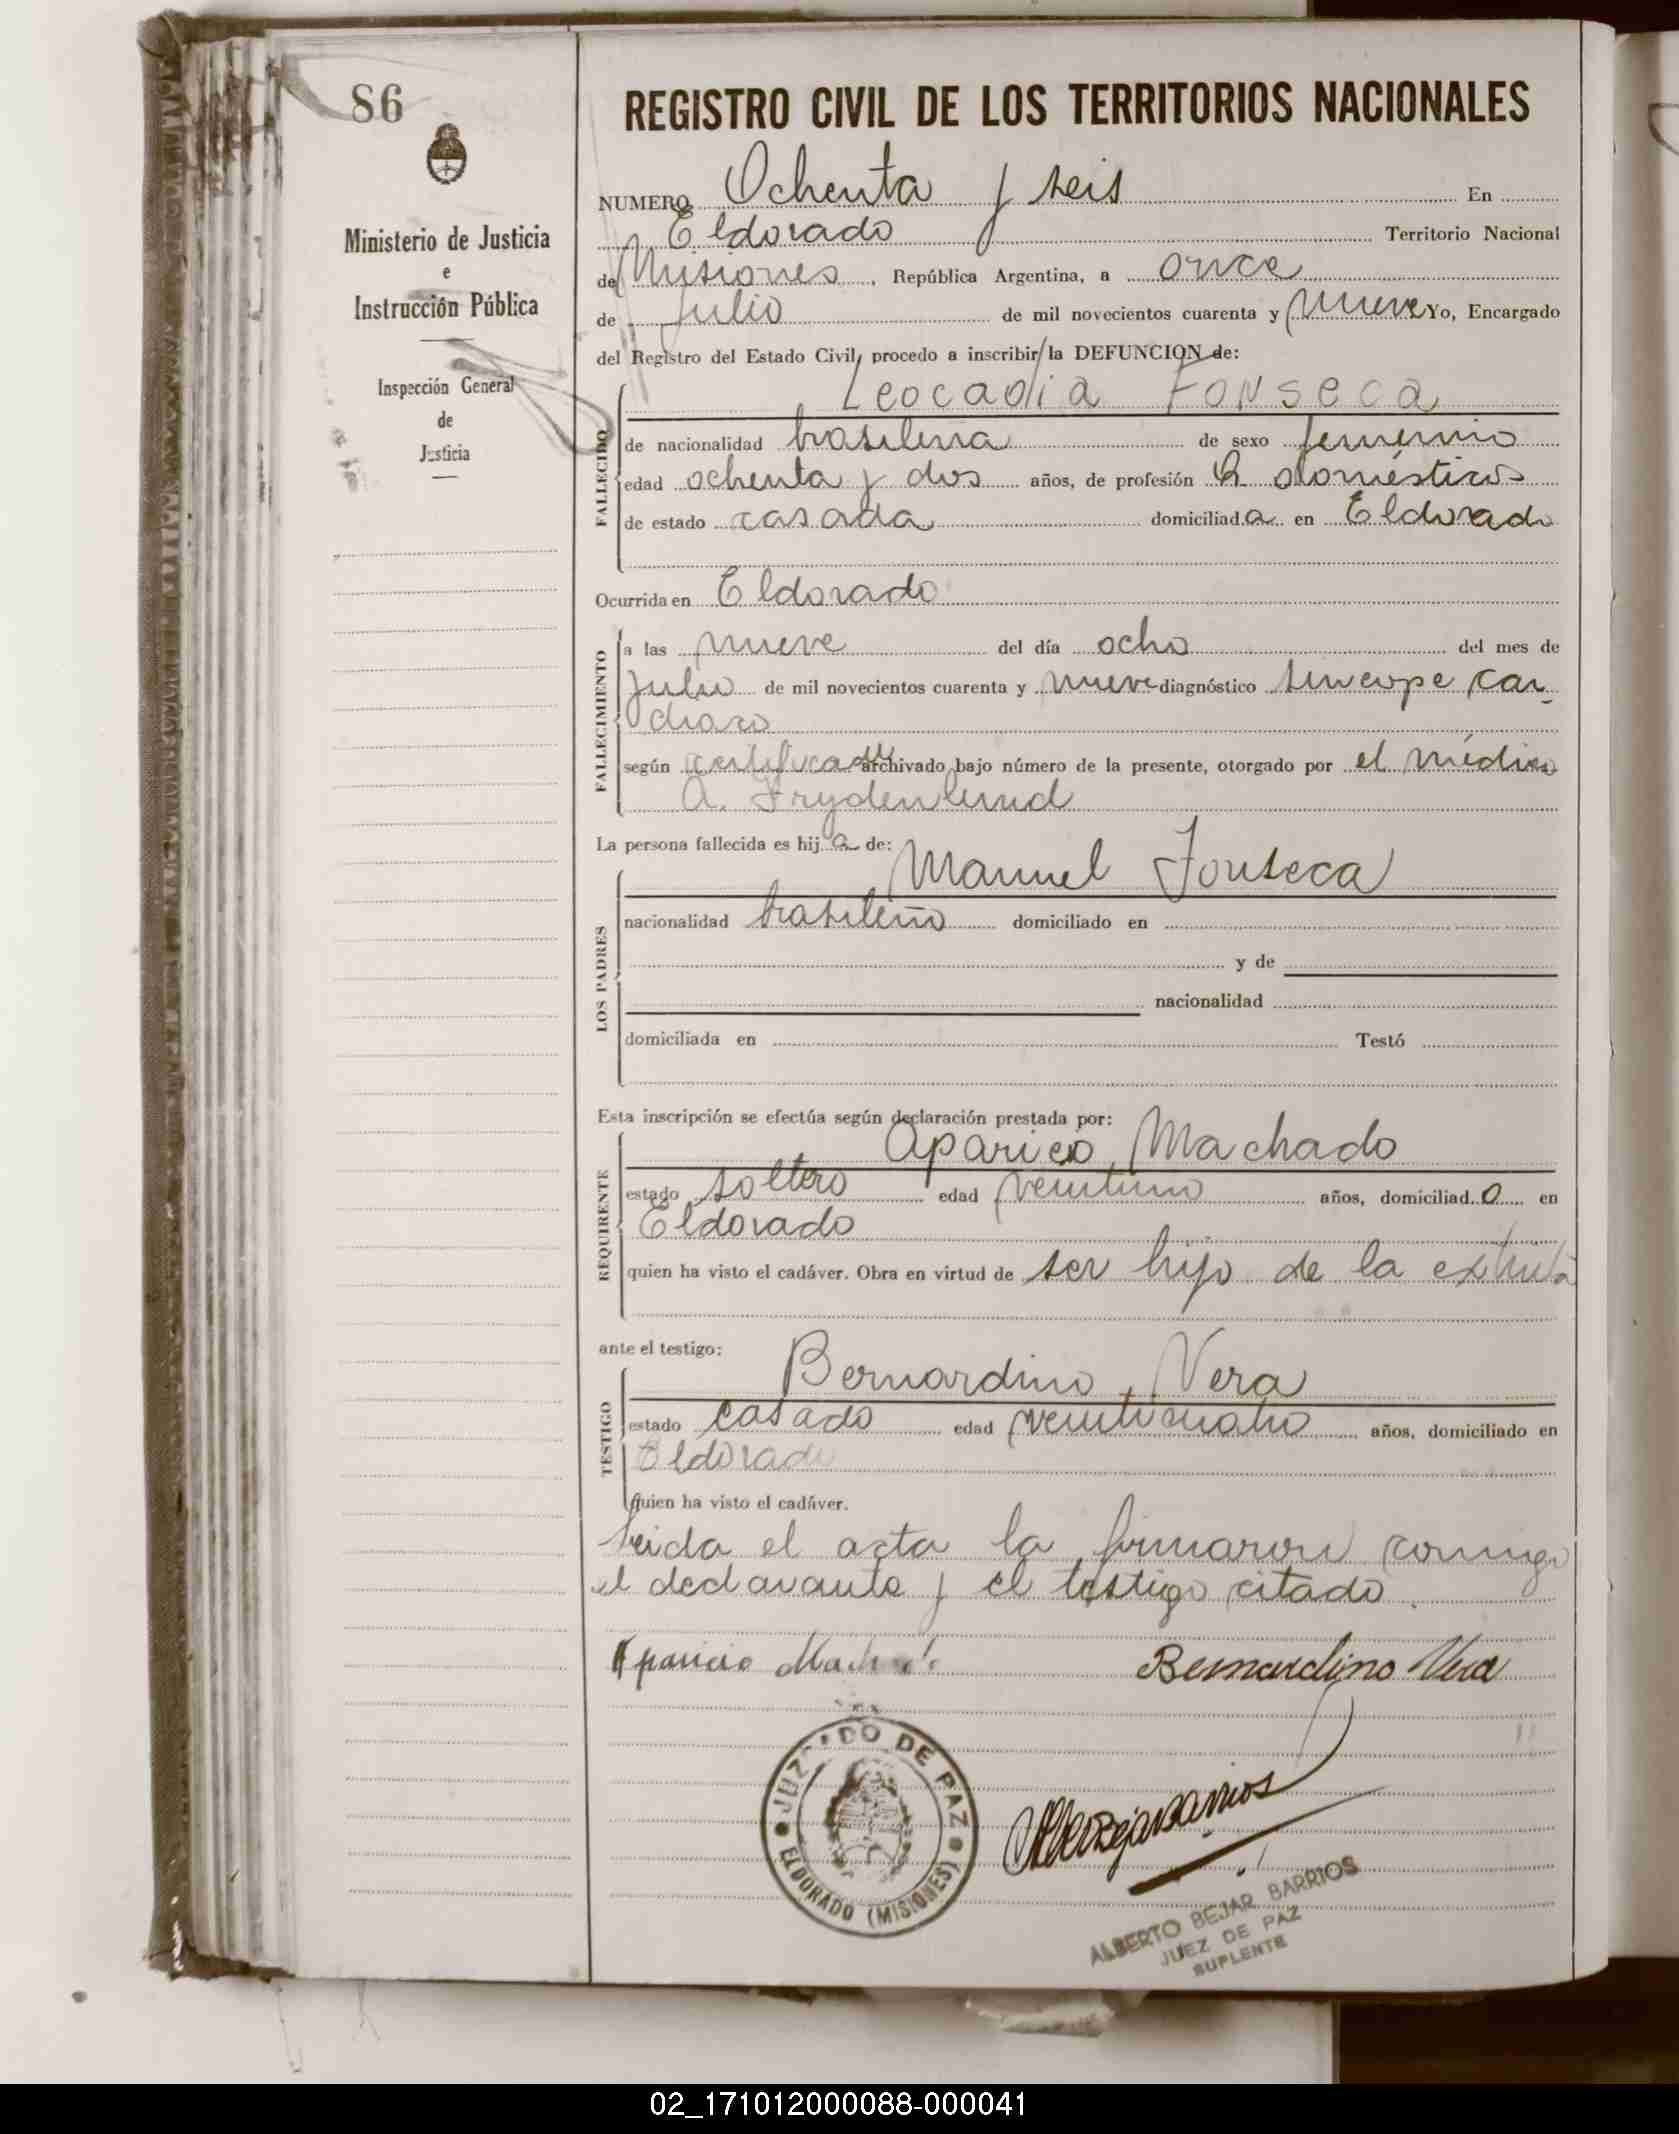 86
Ministerio de Justicia
e
Instrucción Pública
Inspección General
de
Justicia
REGISTRO CIVIL DE LOS TERRITORIOS NACIONALES
NUMERO Ochenta y seis En
Eldorado Territorio Nacional
de Misiones, República Argentina, a once
de Julio de mil novecientos cuarenta y nueve Yo, Encargado
del Registro del Estado Civil, procedo a inscribir la DEFUNCION de:
Leocadia Fonseca
FALLECIDO
de nacionalidad brasilera de sexo femenino
edad ochenta y dos años, de profesión Q. domésticos
de estado casada domiciliada en Eldorado
Ocurrida en Eldorado
FALLECIMIENTO
a las nueve del día ocho del mes de
julio de mil novecientos cuarenta y nueve diagnóstico sincope car-
diaco
según certificado archivado bajo número de la presente, otorgado por el médico
A. Frydenlund
La persona fallecida es hija de:
Manuel Fonseca
LOS PADRES
nacionalidad brasileño domiciliado en
y de
nacionalidad
domiciliada en Testó
Esta inscripción se efectúa según declaración prestada por:
Aparicio Machado
REQUIRENTE
estado soltero edad veintiuno años, domiciliado en
Eldorado
quien ha visto el cadáver. Obra en virtud de ser hijo de la extinta
ante el testigo:
Bernardino Vera
TESTIGO
estado casado edad veinticuatro años, domiciliado en
Eldorado
quien ha visto el cadáver.
Leida el acta la firmaron conmigo
el declarante y el testigo citado.
Aparicio Machado Bernardino Vera
JUZGADO DE PAZ
ELDORADO (MISIONES)
AlbertoBejarBarrios
ALBERTO BEJAR BARRIOS
JUEZ DE PAZ
SUPLENTE
02_171012000088-000041